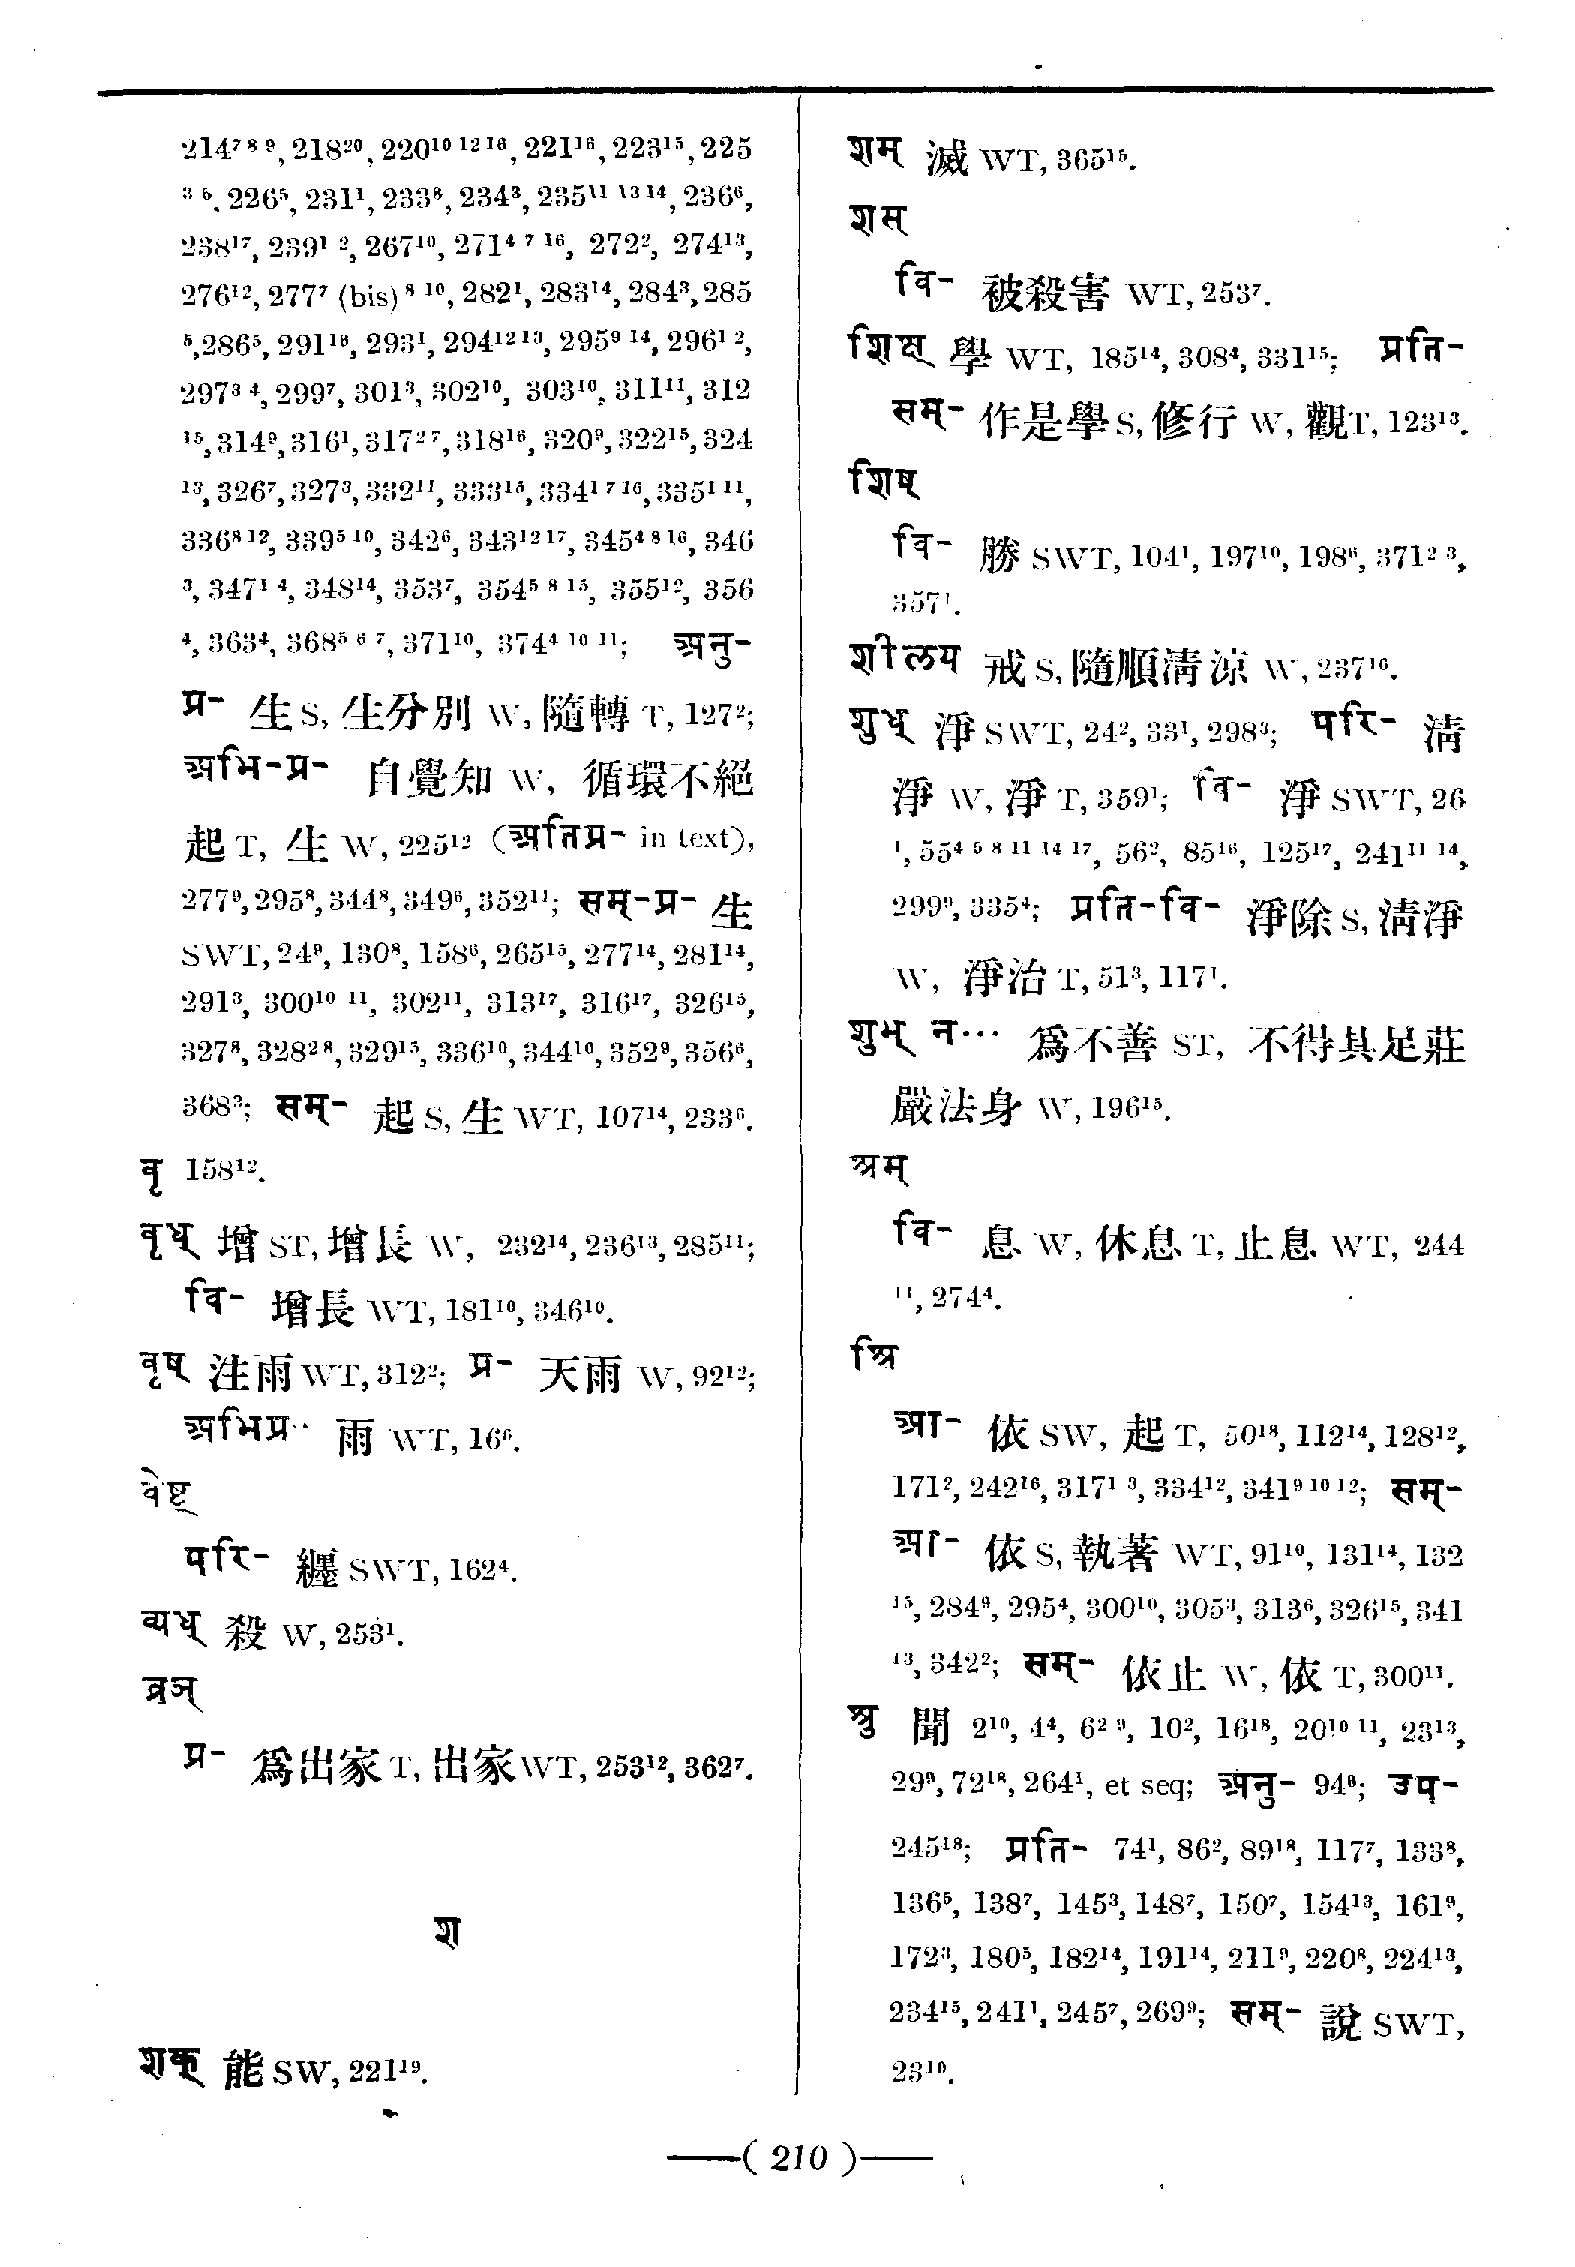 214⁷ ⁸ ⁹, 218²⁰, 220¹⁰ ¹² ¹⁶, 221¹⁶, 223¹⁵, 225
³ ⁵, 226⁵, 231¹, 233⁸, 234³, 235¹¹ ¹³ ¹⁴, 236⁶,
238¹⁷, 239¹ ², 267¹⁰, 271⁴ ⁷ ¹⁶, 272², 274¹³,
276¹², 277⁷ (bis) ⁸ ¹⁰, 282¹, 283¹⁴, 284³, 285
⁵, 286⁵, 291¹⁶, 293¹, 294¹² ¹³, 295⁹ ¹⁴, 296¹ ²,
297³ ⁴, 299⁷, 301³, 302¹⁰, 303¹⁰, 311¹¹, 312
¹⁵, 314⁹, 316¹, 317² ⁷, 318¹⁶, 320⁹, 322¹⁵, 324
¹³, 326⁷, 327³, 332¹¹, 333¹⁵, 334¹ ⁷ ¹⁶, 335¹ ¹¹,
336⁸ ¹², 339⁵ ¹⁰, 342⁶, 343¹² ¹⁷, 345⁴ ⁸ ¹⁶, 346
³, 347¹ ⁴, 348¹⁴, 353⁷, 354⁵ ⁸ ¹⁵, 355¹², 356
⁴, 363⁴, 368⁵ ⁶ ⁷, 371¹⁰, 374⁴ ¹⁰ ¹¹; अनु-
प्र- 生 S, 生分別 W, 隨轉 T, 127²;
अभि-प्र- 自覺知 W, 循環不絕
起 T, 生 W, 225¹² (अतिप्र- in text),
277⁹, 295⁸, 344⁸, 349⁶, 352¹¹; सम्-प्र- 生
SWT, 24⁹, 130⁸, 158⁶, 265¹⁵, 277¹⁴, 281¹⁴,
291³, 300¹⁰ ¹¹, 302¹¹, 313¹⁷, 316¹⁷, 326¹⁵,
327⁸, 328² ⁸, 329¹⁵, 336¹⁰, 344¹⁰, 352⁹, 356⁶,
368³; सम्- 起 S, 生 WT, 107¹⁴, 233⁶.
वृ 158¹².
वृध् 增 ST, 增長 W, 232¹⁴, 236¹³, 285¹¹;
वि- 增長 WT, 181¹⁰, 346¹⁰.
वृष् 注雨 WT, 312²; प्र- 天雨 W, 92¹²;
अभिप्र·· 雨 WT, 16⁶.
वेष्ट्
परि- 纏 SWT, 162⁴.
व्यध् 殺 W, 253¹.
व्रज्
प्र- 爲出家 T, 出家 WT, 253¹², 362⁷.
श
शक् 能 SW, 221¹⁹.
शम् 滅 WT, 365¹⁵.
शस्
वि- 被殺害 WT, 253⁷.
शिक्ष् 學 WT, 185¹⁴, 308⁴, 331¹⁵; प्रति-
सम्- 作是學 S, 修行 W, 觀 T, 123¹³.
शिष्
वि- 勝 SWT, 104¹, 197¹⁰, 198⁶, 371² ³,
357¹.
शीलय 戒 S, 隨順淸涼 W, 237¹⁶.
शुध् 淨 SWT, 24², 33¹, 298³; परि- 淸
淨 W, 淨 T, 359¹; वि- 淨 SWT, 26
¹, 55⁴ ⁵ ⁸ ¹¹ ¹⁴ ¹⁷, 56², 85¹⁶, 125¹⁷, 241¹¹ ¹⁴,
299⁹, 335⁴; प्रति-वि- 淨除 S, 淸淨
W, 淨治 T, 51³, 117¹.
शुभ् न··· 爲不善 ST, 不得具足莊
嚴法身 W, 196¹⁵.
श्रम्
वि- 息 W, 休息 T, 止息 WT, 244
¹¹, 274⁴.
श्रि
आ- 依 SW, 起 T, 50¹⁸, 112¹⁴, 128¹²,
171², 242¹⁶, 317¹ ³, 334¹², 341⁹ ¹⁰ ¹²; सम्-
आ- 依 S, 執著 WT, 91¹⁰, 131¹⁴, 132
¹⁵, 284⁹, 295⁴, 300¹⁰, 305³, 313⁶, 326¹⁵, 341
¹³, 342²; सम्- 依止 W, 依 T, 300¹¹.
श्रु 聞 2¹⁰, 4⁴, 6² ⁹, 10², 16¹⁸, 20¹⁰ ¹¹, 23¹³,
29⁹, 72¹⁸, 264¹, et seq; अनु- 94⁸; उप-
245¹⁸; प्रति- 74¹, 86², 89¹⁸, 117⁷, 133⁸,
136⁵, 138⁷, 145³, 148⁷, 150⁷, 154¹³, 161⁹,
172³, 180⁵, 182¹⁴, 191¹⁴, 211⁹, 220⁸, 224¹³,
234¹⁵, 241¹, 245⁷, 269⁹; सम्- 說 SWT,
23¹⁰.
( 210 )